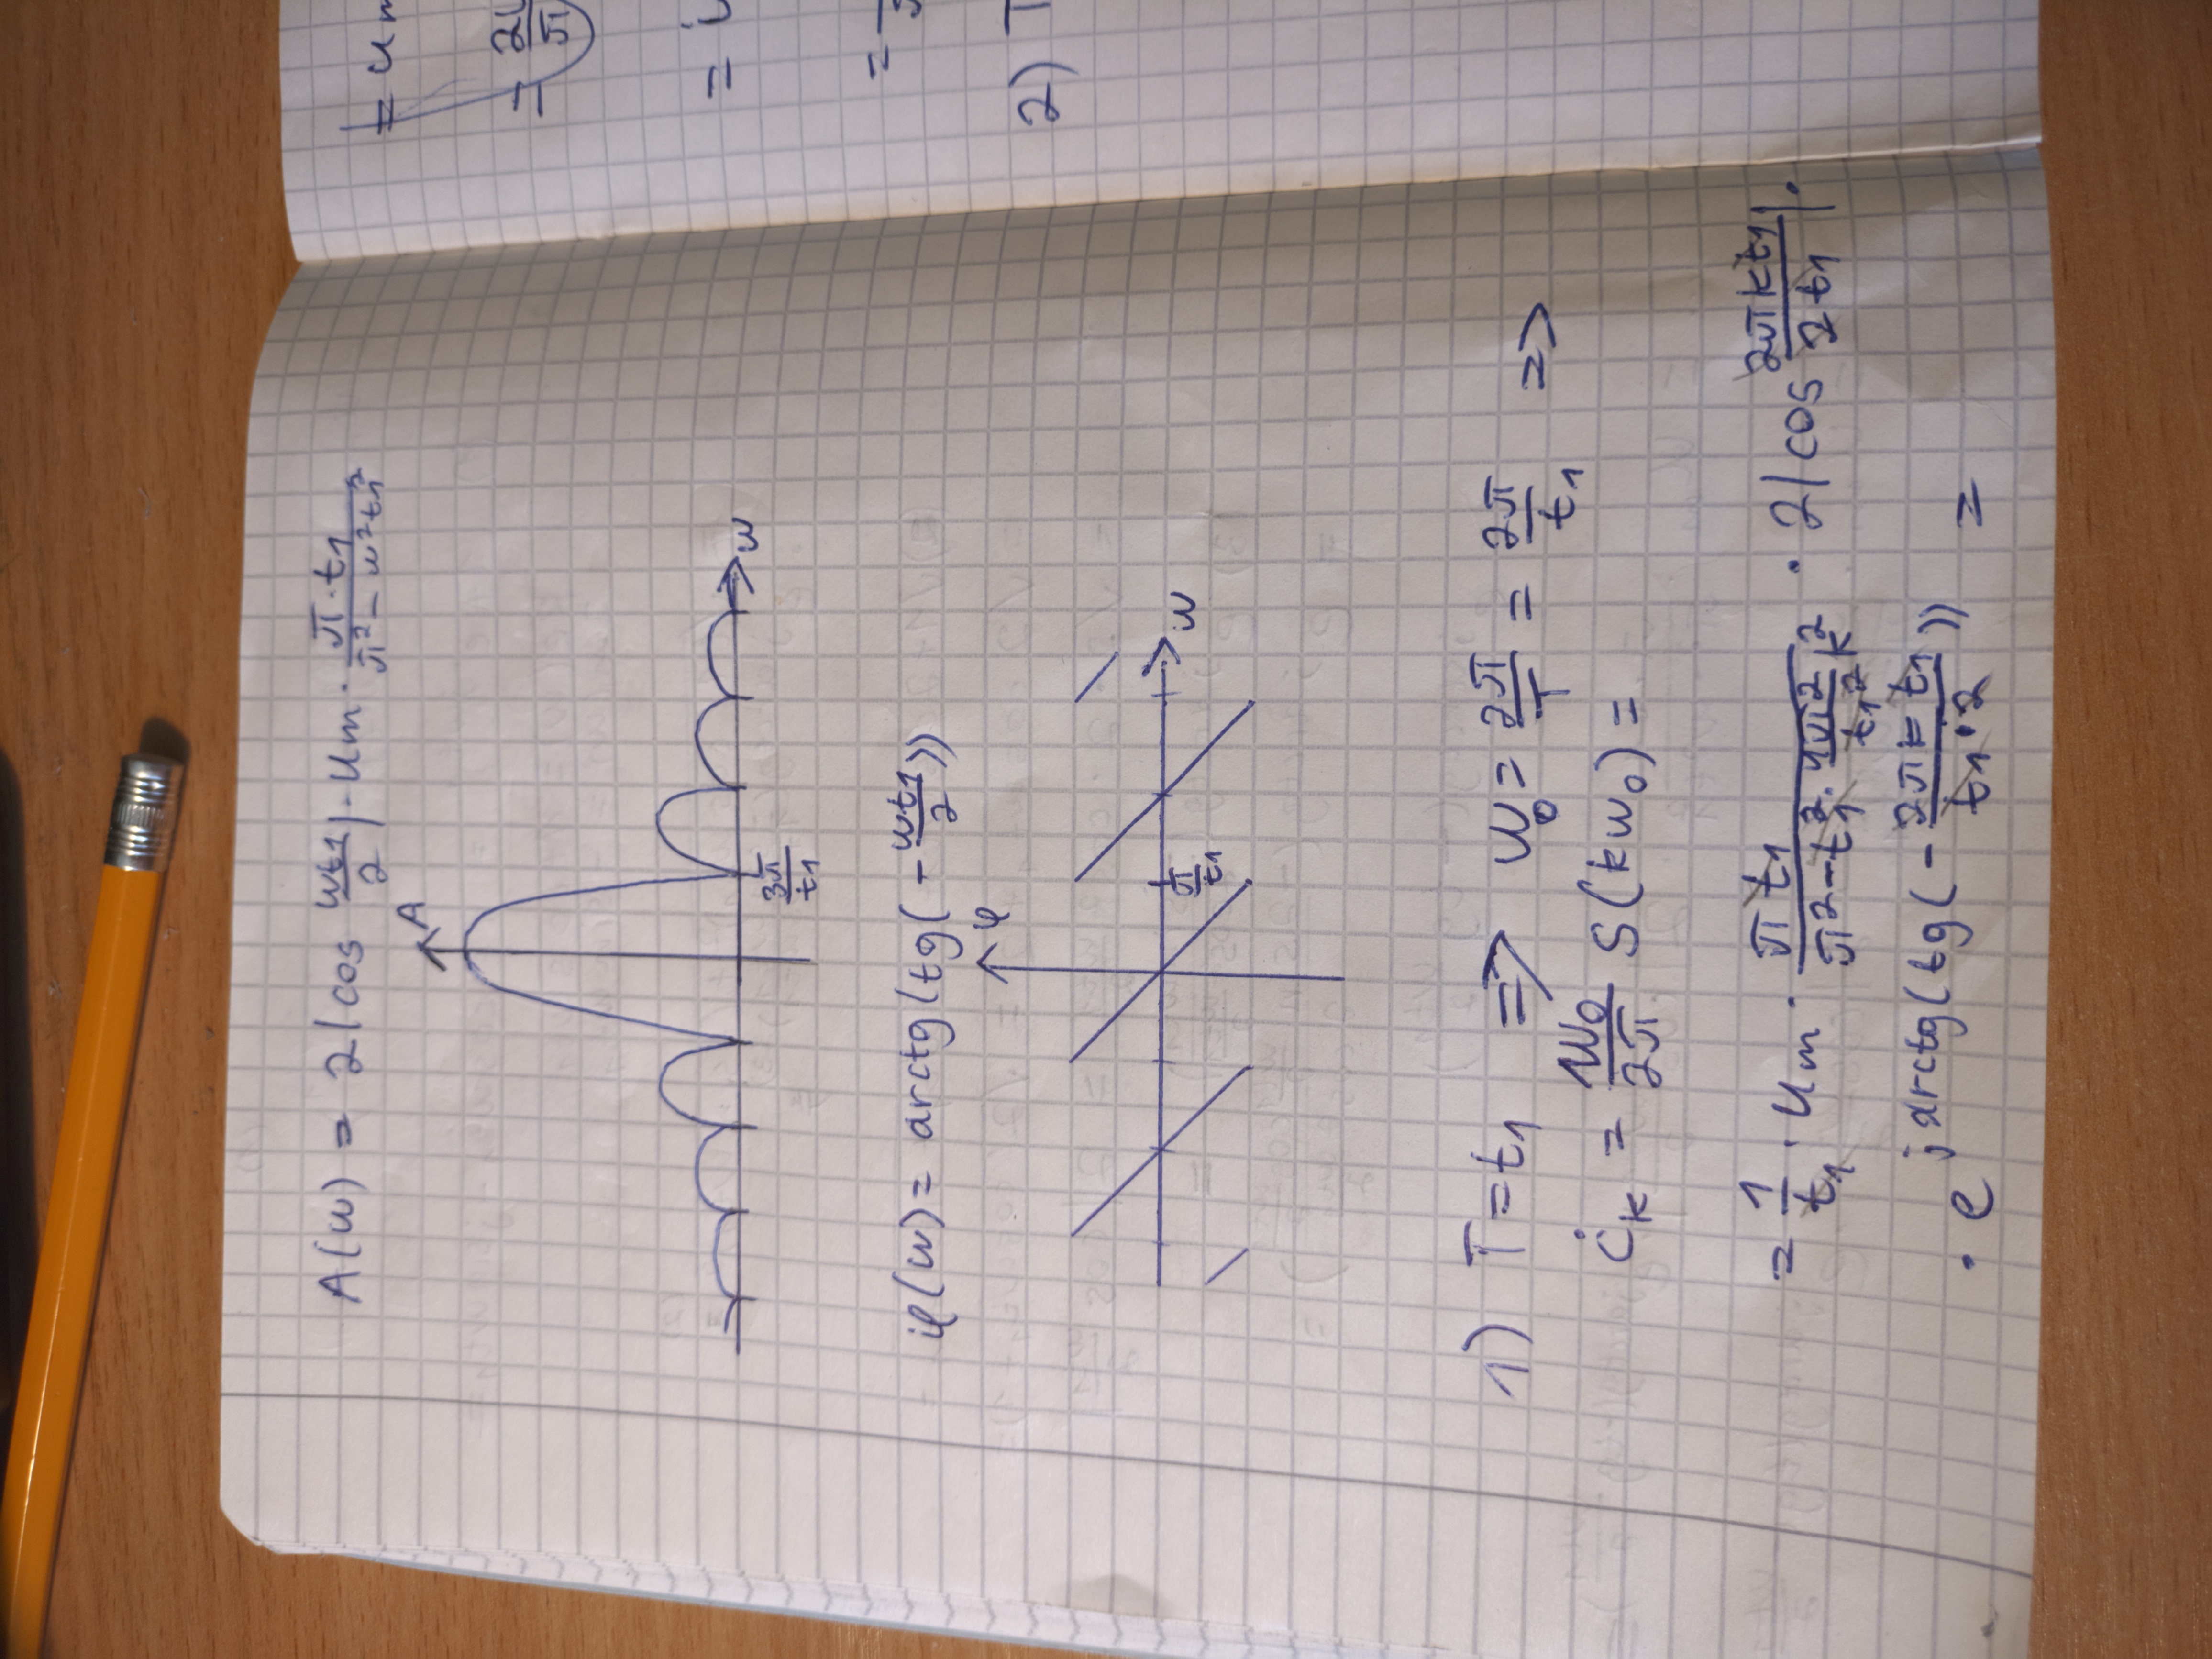 A(w) = 2|cos wt₁/2| · um · π·t₁/(π² − w²t₁²)
A
w
3π/t₁
φ(w) = arctg(tg(−wt₁/2))
φ
w
π/t₁
1) T = t₁ => w₀ = 2π/T = 2π/t₁ =>
ċₖ = w₀/2π S(kw₀) =
= 1/t₁ · um · πt₁/(π² − t₁² · 4π²/t₁² k²) · 2|cos 2πkt₁/2t₁| ·
· e^(j arctg(tg(−2πkt₁/t₁·2))) =
= um
=
=
=
2) T